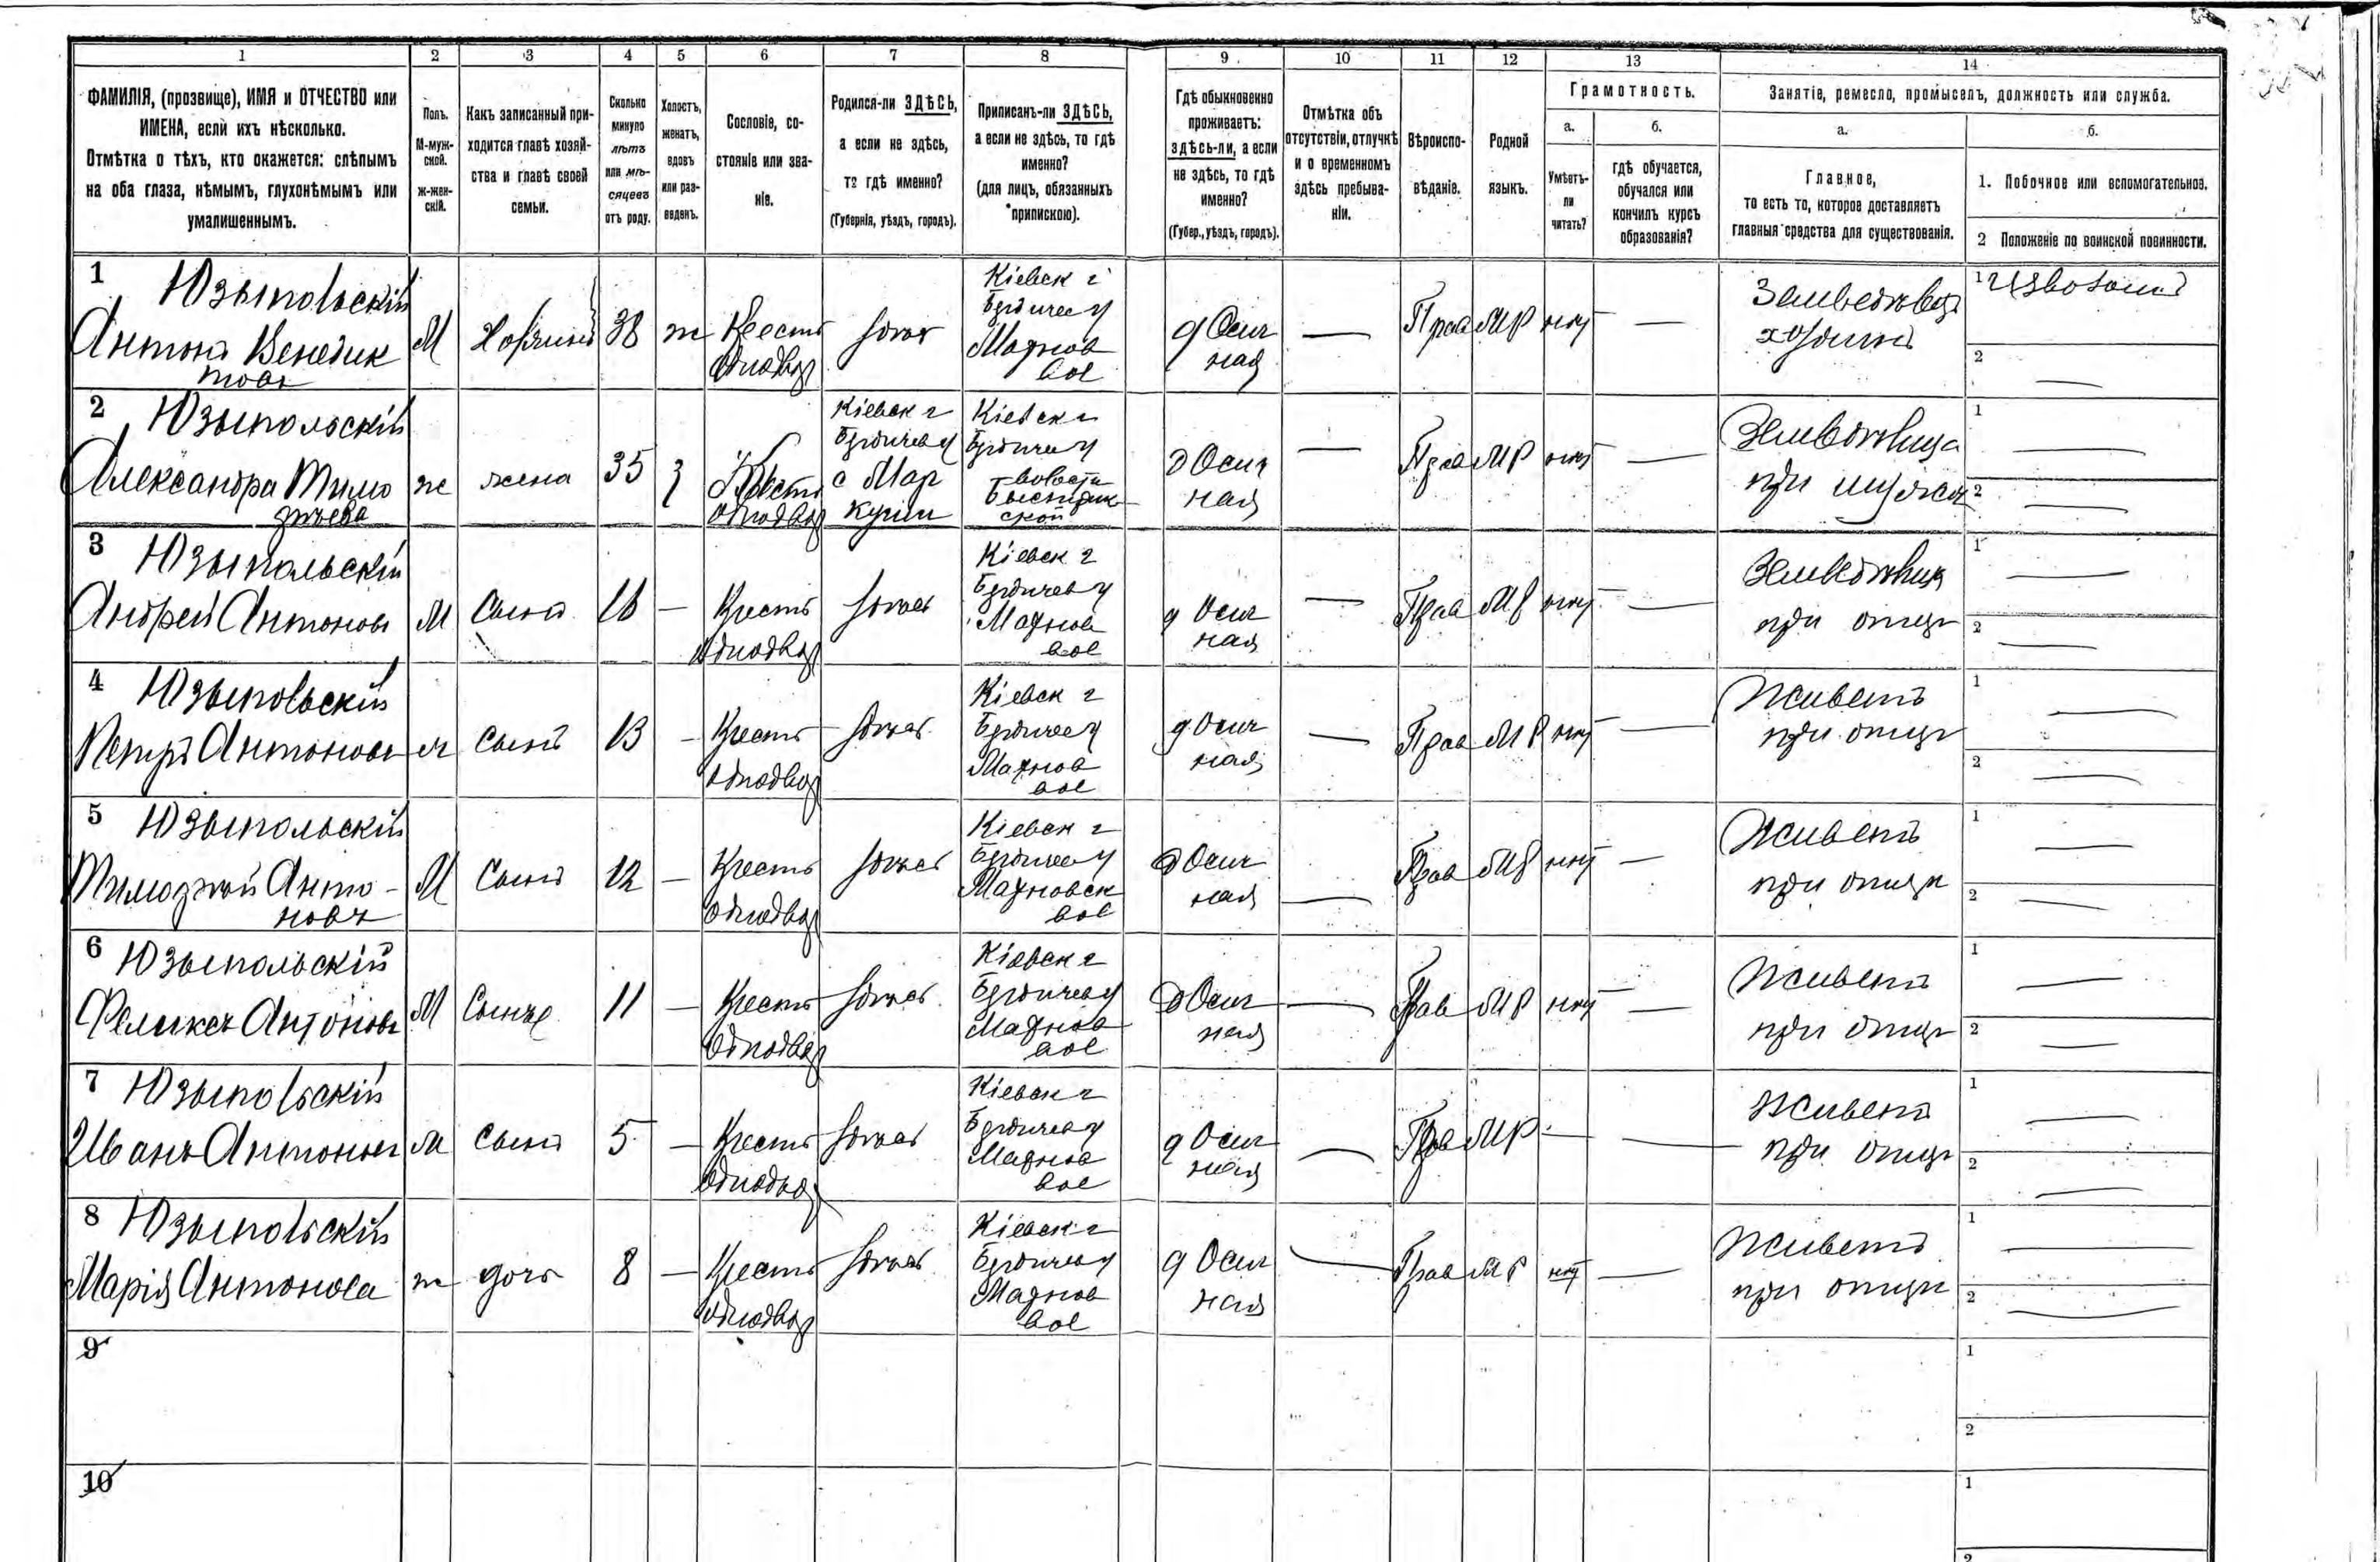 1 2 3 4 5 6 7 8 9 10 11 12 13 14
ФАМИЛІЯ, (прозвище), ИМЯ и ОТЧЕСТВО или
ИМЕНА, если ихъ нѣсколько.
Отмѣтка о тѣхъ, кто окажется: слѣпымъ
на оба глаза, нѣмымъ, глухонѣмымъ или
умалишеннымъ.
Полъ.
М-муж-
ской.
ж-жен-
скій.
Какъ записанный при-
ходится главѣ хозяй-
ства и главѣ своей
семьи.
Сколько
минуло
лѣтъ
или мѣ-
сяцевъ
отъ роду.
Холостъ,
женатъ,
вдовъ
или раз-
веденъ.
Сословіе, со-
стояніе или зва-
ніе.
Родился-ли ЗДѢСЬ,
а если не здѣсь,
то гдѣ именно?
(Губернія, уѣздъ, городъ).
Приписанъ-ли ЗДѢСЬ,
а если не здѣсь, то гдѣ
именно?
(для лицъ, обязанныхъ
припискою).
Гдѣ обыкновенно
проживаетъ:
здѣсь-ли, а если
не здѣсь, то гдѣ
именно?
(Губер., уѣздъ, городъ).
Отмѣтка объ
отсутствіи, отлучкѣ
и о временномъ
здѣсь пребыва-
ніи.
Вѣроиспо-
вѣданіе.
Родной
языкъ.
Грамотность.
а.
Умѣетъ-
ли
читать?
б.
гдѣ обучается,
обучался или
кончилъ курсъ
образованія?
Занятіе, ремесло, промыселъ, должность или служба.
а.
Главное,
то есть то, которое доставляетъ
главныя средства для существованія.
б.
1. Побочное или вспомогательное.
2 Положеніе по воинской повинности.
1 Юзыпольскій
Антонъ Венедик
товъ
М
Хозяинъ
38
ж
Крестъ
однодвор
здѣсь
Кіевск г
Бердичев у
Махнов
вол
д Осич
ная
—
Прав
МР
нѣт
—
хозяинъ
1
2 —
2 Юзыпольскій
Александра Тимо
ж
жена
35
З
Крестъ
однодвор
Кіевск г
Бердичев у
с Мар
Кіевск г
Бердичев у
волости
ской
д Осич
ная
—
Прав
МР
нѣт
—
при мужѣ
1 —
2 —
3 Юзыпольскій
Андрей Антоновъ
М
Сынъ
16
—
Крестъ
однодвор
здѣсь
Кіевск г
Бердичев у
Махнов
вол
д Осич
ная
—
Прав
МР
нѣт
—
при отцѣ
1 —
2 —
4 Юзыпольскій
Петръ Антоновъ
м
Сынъ
13
—
Крестъ
однодвор
здѣсь
Кіевск г
Бердичев у
Махнов
вол
д Осич
ная
—
Прав
МР
нѣт
—
Живетъ
при отцѣ
1 —
2 —
5 Юзыпольскій
Тимофѣй Анто-
новъ
М
Сынъ
12
—
Крестъ
однодвор
здѣсь
Кіевск г
Бердичев у
Махновск
вол
д Осич
ная
—
Прав
МР
нѣт
—
Живетъ
при отцѣ
1 —
2 —
6 Юзыпольскій
Феликсъ Антоновъ
М
Сынъ
11
—
Крестъ
однодвор
здѣсь
Кіевск г
Бердичев у
Махнов
вол
д Осич
ная
—
Прав
МР
нѣт
—
Живетъ
при отцѣ
1 —
2 —
7 Юзыпольскій
Иванъ Антоновъ
М
Сынъ
5
—
Крестъ
однодвор
здѣсь
Кіевск г
Бердичев у
Махнов
вол
д Осич
ная
—
Прав
МР
—
—
Живетъ
при отцѣ
1 —
2 —
8 Юзыпольскій
Марія Антонова
ж
дочь
8
—
Крестъ
однодвор
здѣсь
Кіевск г
Бердичев у
Махнов
вол
д Осич
ная
—
Прав
МР
нѣт
—
Живетъ
при отцѣ
1 —
2 —
9
1
2
10
1
2